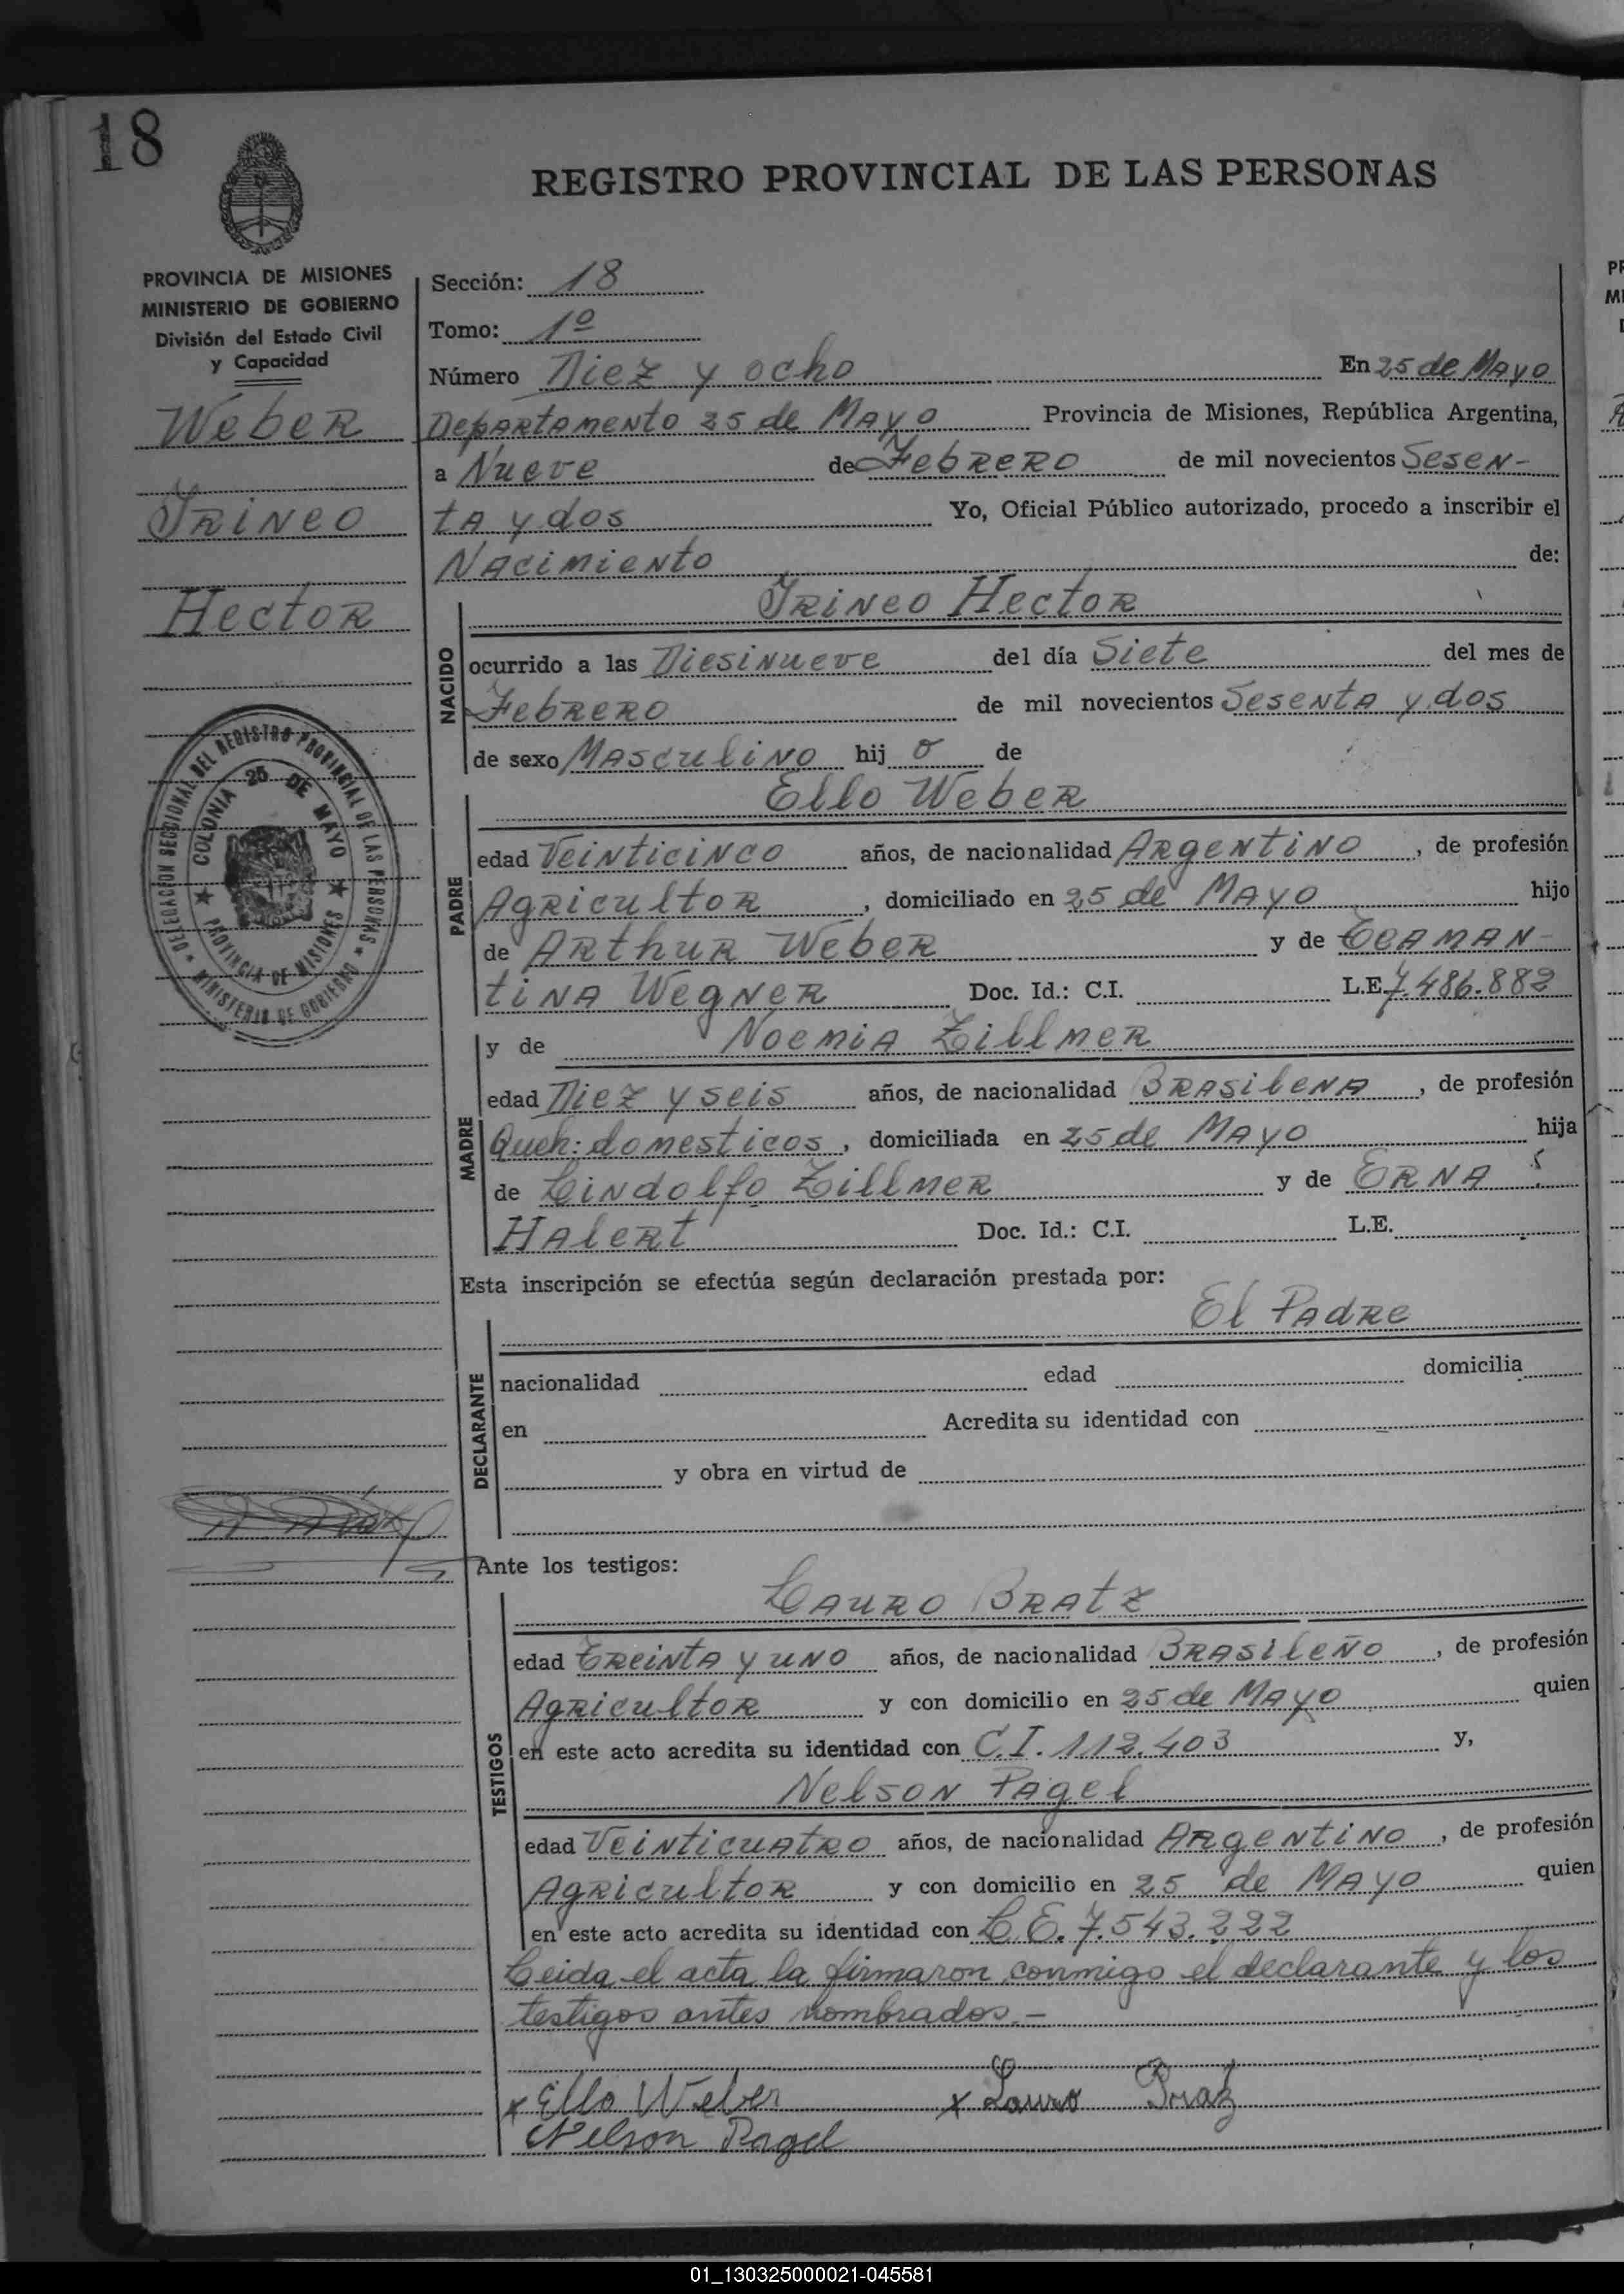 18
REGISTRO PROVINCIAL DE LAS PERSONAS
PROVINCIA DE MISIONES
MINISTERIO DE GOBIERNO
División del Estado Civil
y Capacidad
Weber
Irineo
Hector
DELEGACION SECCIONAL DEL REGISTRO PROVINCIAL DE LAS PERSONAS
COLONIA 25 DE MAYO
PROVINCIA DE MISIONES
MINISTERIO DE GOBIERNO
Sección: 18
Tomo: 1º
Número Diez y ocho En 25 de Mayo
Departamento 25 de Mayo Provincia de Misiones, República Argentina,
a Nueve de Febrero de mil novecientos Sesen-
ta y dos Yo, Oficial Público autorizado, procedo a inscribir el
Nacimiento de:
NACIDO
Irineo Hector
ocurrido a las Diesinueve del día Siete del mes de
Febrero de mil novecientos Sesenta y dos
de sexo Masculino hij o de
PADRE
Ello Weber
edad Veinticinco años, de nacionalidad Argentino, de profesión
Agricultor, domiciliado en 25 de Mayo hijo
de Arthur Weber y de
tina Wegner Doc. Id.: C.I. L.E. 7.486.882
MADRE
y de Noemia Zillmer
edad Diez y seis años, de nacionalidad Brasilena, de profesión
Queh: domesticos, domiciliada en 25 de Mayo hija
de Lindolfo Zillmer y de Erna
Halert Doc. Id.: C.I. L.E.
Esta inscripción se efectúa según declaración prestada por:
El Padre
DECLARANTE
nacionalidad edad domicilia
en Acredita su identidad con
y obra en virtud de
Ante los testigos:
TESTIGOS
Lauro Bratz
edad Treinta y uno años, de nacionalidad Brasileño, de profesión
Agricultor y con domicilio en 25 de Mayo quien
en este acto acredita su identidad con C.I. 112.403 y,
Nelson Pagel
edad Veinticuatro años, de nacionalidad Argentino, de profesión
Agricultor y con domicilio en 25 de Mayo quien
en este acto acredita su identidad con L.E. 7.543.222
Leida el acta la firmaron conmigo el declarante y los
testigos antes nombrados.-
x Ello Weber x Lauro Braz
Nelson Pagel
01_130325000021-045581